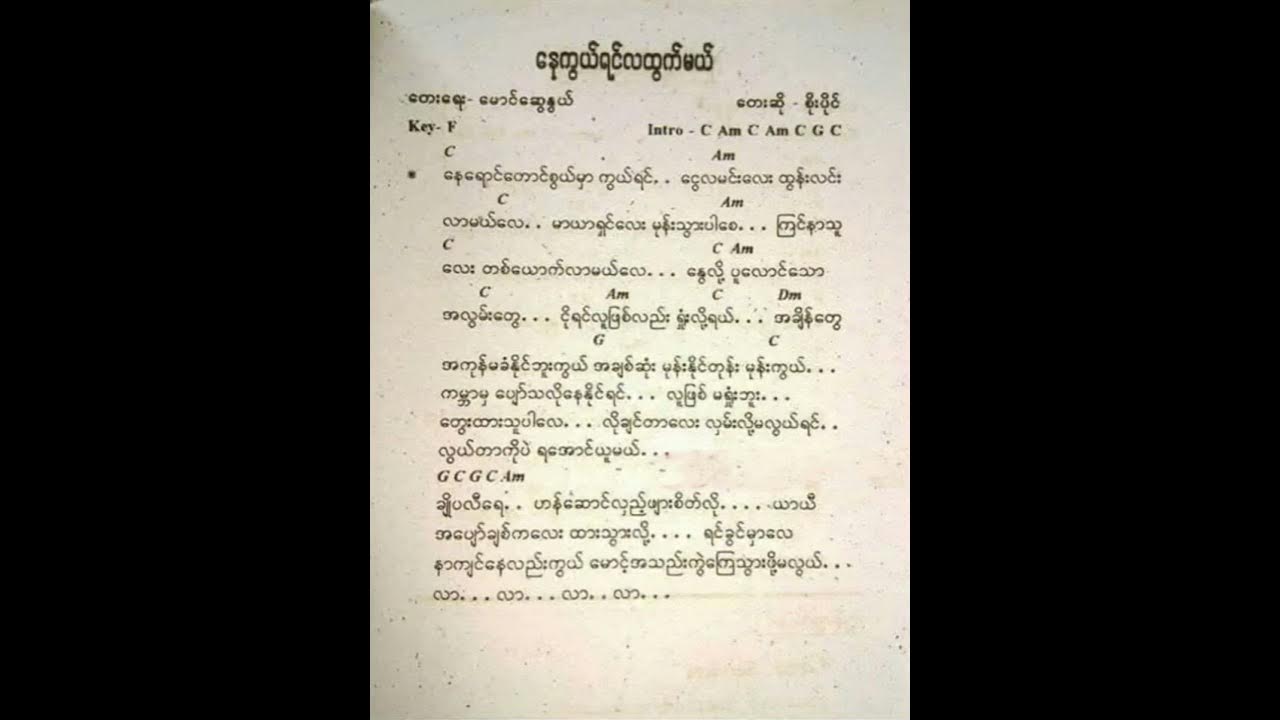 နေကွယ်ရင်လထွက်မယ်
တေးရေး- မောင်ဆွေနွယ် တေးဆို - စိုးပိုင်
Key- F Intro - C Am C Am C G C
C Am
* နေရောင်တောင်စွယ်မှာ ကွယ်ရင်. . ငွေလမင်းလေး ထွန်းလင်း
C Am
လာမယ်လေ. . မာယာရှင်လေး မုန်းသွားပါစေ. . . ကြင်နာသူ
C C Am
လေး တစ်ယောက်လာမယ်လေ. . . နွေလို့ ပူလောင်သော
C Am C Dm
အလွမ်းတွေ. . . ငိုရင်လူဖြစ်လည်း ရှုံးလို့ရယ်. . . အချိန်တွေ
G C
အကုန်မခံနိုင်ဘူးကွယ် အချစ်ဆုံး မုန်းနိုင်တုန်း မုန်းကွယ်. . .
ကမ္ဘာမှ ပျော်သလိုနေနိုင်ရင်. . . လူဖြစ် မရှုံးဘူး. . .
တွေးထားသူပါလေ. . . လိုချင်တာလေး လှမ်းလို့မလွယ်ရင်. .
လွယ်တာကိုပဲ ရအောင်ယူမယ်. . .
G C G C Am
ချိုပလီရေ. . ဟန်ဆောင်လှည့်ဖျားစိတ်လို. . . . . ယာယီ
အပျော်ချစ်ကလေး ထားသွားလို့. . . . ရင်ခွင်မှာလေ
နာကျင်နေလည်းကွယ် မောင့်အသည်းကွဲကြေသွားဖို့မလွယ်. . .
လာ. . . လာ. . . လာ. . လာ. . .